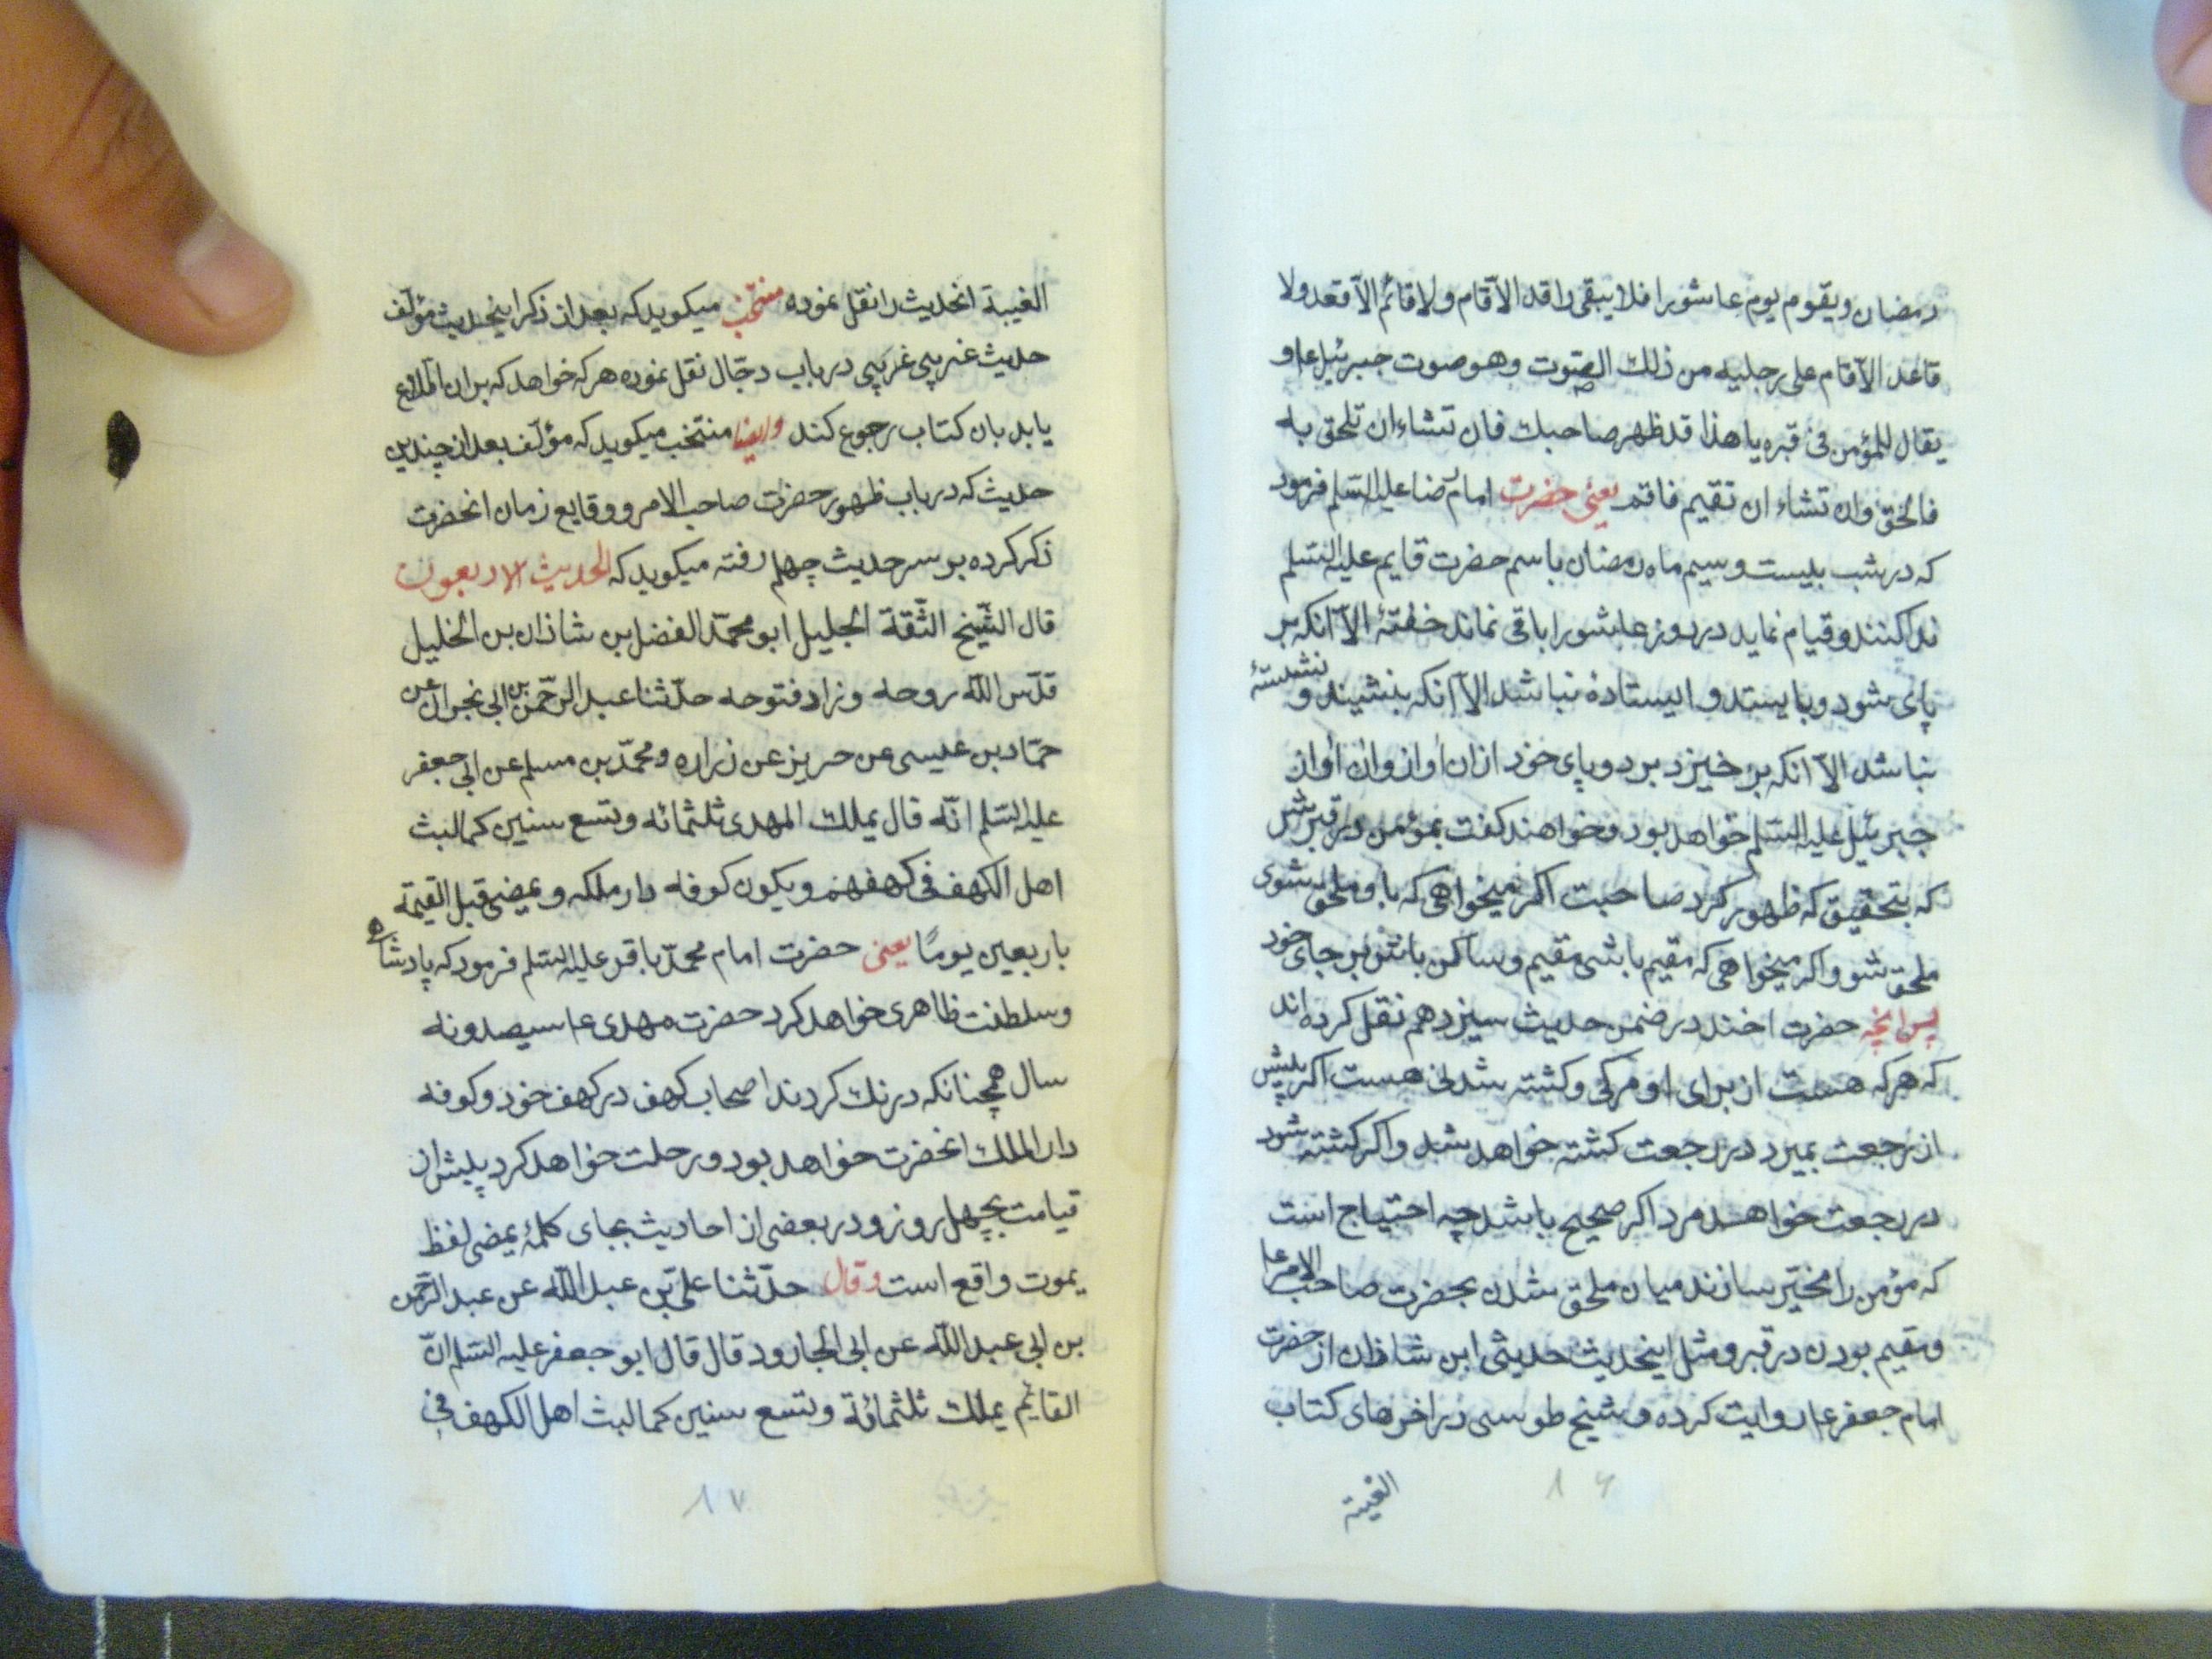 رمضان ويقوم يوم عاشورا فلا يبقى راقد الّا قام ولا قائم الّا قعد ولا
قاعد الّا قام على رجليه من ذلك الصّوت وهو صوت جبرئيل ع و
يقال للمؤمن فى قبره يا هذا قد ظهر صاحبك فان تشاء ان تلحق به
فالحق وان تشاء ان تقيم فاقم يعنى حضرت امام رضا عليه السّلم فرمود
كه در شب بيست و سيم ماه رمضان باسم حضرت قايم عليه السّلم
ندا كنند و قيام نمايد در روز عاشورا باقى نماند خفتهٔ الّا آنكه بر
پاى شود و بايستد و ايستادهٔ نباشد الّا آنكه بنشيند و نشستهٔ
نباشد الّا آنكه بر خيزد بر دو پاى خود از ان آواز و ان آواز
جبرئيل عليه السّلم خواهد بود و خواهند كفت بمؤمن در قبرش
كه بتحقيق كه ظهور كرد صاحبت اكر ميخواهى كه باو ملحق شوى
ملحق شو و اكر ميخواهى كه مقيم باشى مقيم و ساكن باش بر جاى خود
پس آنچه حضرت اخند در ضمن حديث سيزدهم نقل كرده اند
كه هر كه هست از براى او مركى و كشته شدنى هست اكر پيش
از رجعت بميرد در رجعت كشته خواهد شد و اكر كشته شود
در رجعت خواهد مرد اكر صحيح باشد چه احتياج است
كه مؤمن را مخيّر سازند ميان ملحق شدن بحضرت صاحب الامر ع
و مقيم بودن در قبر و مثل اينحديث حديثى ابن شاذان از حضرت
امام جعفر ع روايت كرده و شيخ طوسى در اخرهاى كتاب
الغيبة
١٦
الغيبة انحديث را نقل نموده منتخب ميكويد كه بعد از ذكر اينحديث مؤلّف
حديث غريبى غريبى در باب دجّال نقل نموده هر كه خواهد كه بران اطّلاع
يابد بان كتاب رجوع كند وايضا منتخب ميكويد كه مؤلّف بعد از چندين
حديث كه در باب ظهور حضرت صاحب الامر و وقايع زمان انحضرت
ذكر كرده بر سر حديث چهلم رفته ميكويد كه الحديث الاربعون
قال الشّيخ الثّقة الجليل ابو محمّد الفضل بن شاذان بن الخليل
قدّس اللّه روحه وزاد فتوحه حدّثنا عبد الرّحمن بن ابى نجران عن
حمّاد بن عيسى عن حريز عن زراره ومحمّد بن مسلم عن ابى جعفر
عليه السّلم انّه قال يملك المهدى ثلثمائه وتسع سنين كما لبث
اهل الكهف فى كهفهم ويكون كوفه دار ملكه ويمضى قبل القيمة
باربعين يومًا يعنى حضرت امام محمّد باقر عليه السّلم فرمود كه پادشاهى
و سلطنت ظاهرى خواهد كرد حضرت مهدى ع سيصد و نه
سال همچنانكه درنك كردند اصحاب كهف در كهف خود و كوفه
دار الملك انحضرت خواهد بود و رحلت خواهد كرد پيش از
قيامت بچهل روز و در بعضى از احاديث بجاى كلمهٔ يمضى لفظ
يموت واقع است وقال حدّثنا علىّ بن عبد اللّه عن عبد الرّحمن
بن ابى عبد اللّه عن ابى الجارود قال قال ابو جعفر عليه السّلم انّ
القائم يملك ثلثمائة وتسع سنين كما لبث اهل الكهف فى
١٧